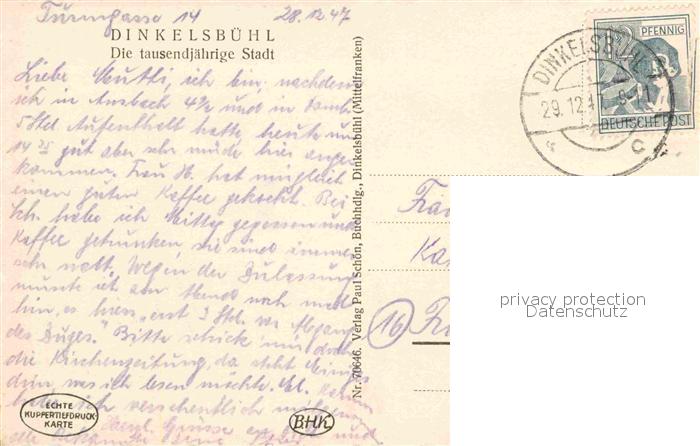 Turmgasse 14 28.12.47
DINKELSBÜHL
Die tausendjährige Stadt
Liebe Mutti, ich bin, nachdem
ich in Ansbach 4½ und in
5 Std Aufenthalt hatte, heute um
14 25 gut aber sehr müde hier ange
kommen. Frau H. hat mir gleich
einen guten Kaffee gekocht. Bei
Sch. habe ich Mittag gegessen und
Kaffee getrunken, sie sind immer
sehr nett. Wegen der Zulassung
musste ich am Abend noch mal
hin, es hiess „erst 2 Std. vor Abgang
des Zuges." Bitte schick mir doch
die Kirchenzeitung, da steht einiges
drin, was ich lesen möchte.
habe ich versehentlich
Herzl. Grüsse
ECHTE
KUPFERTIEFDRUCK-
KARTE
BHK
Nr. 70646. Verlag Paul Schön, Buchhdlg., Dinkelsbühl (Mittelfranken)
12 PFENNIG
DEUTSCHE POST
DINKELSBÜHL
29.12.47
c
Frau
(16)
privacy protection
Datenschutz